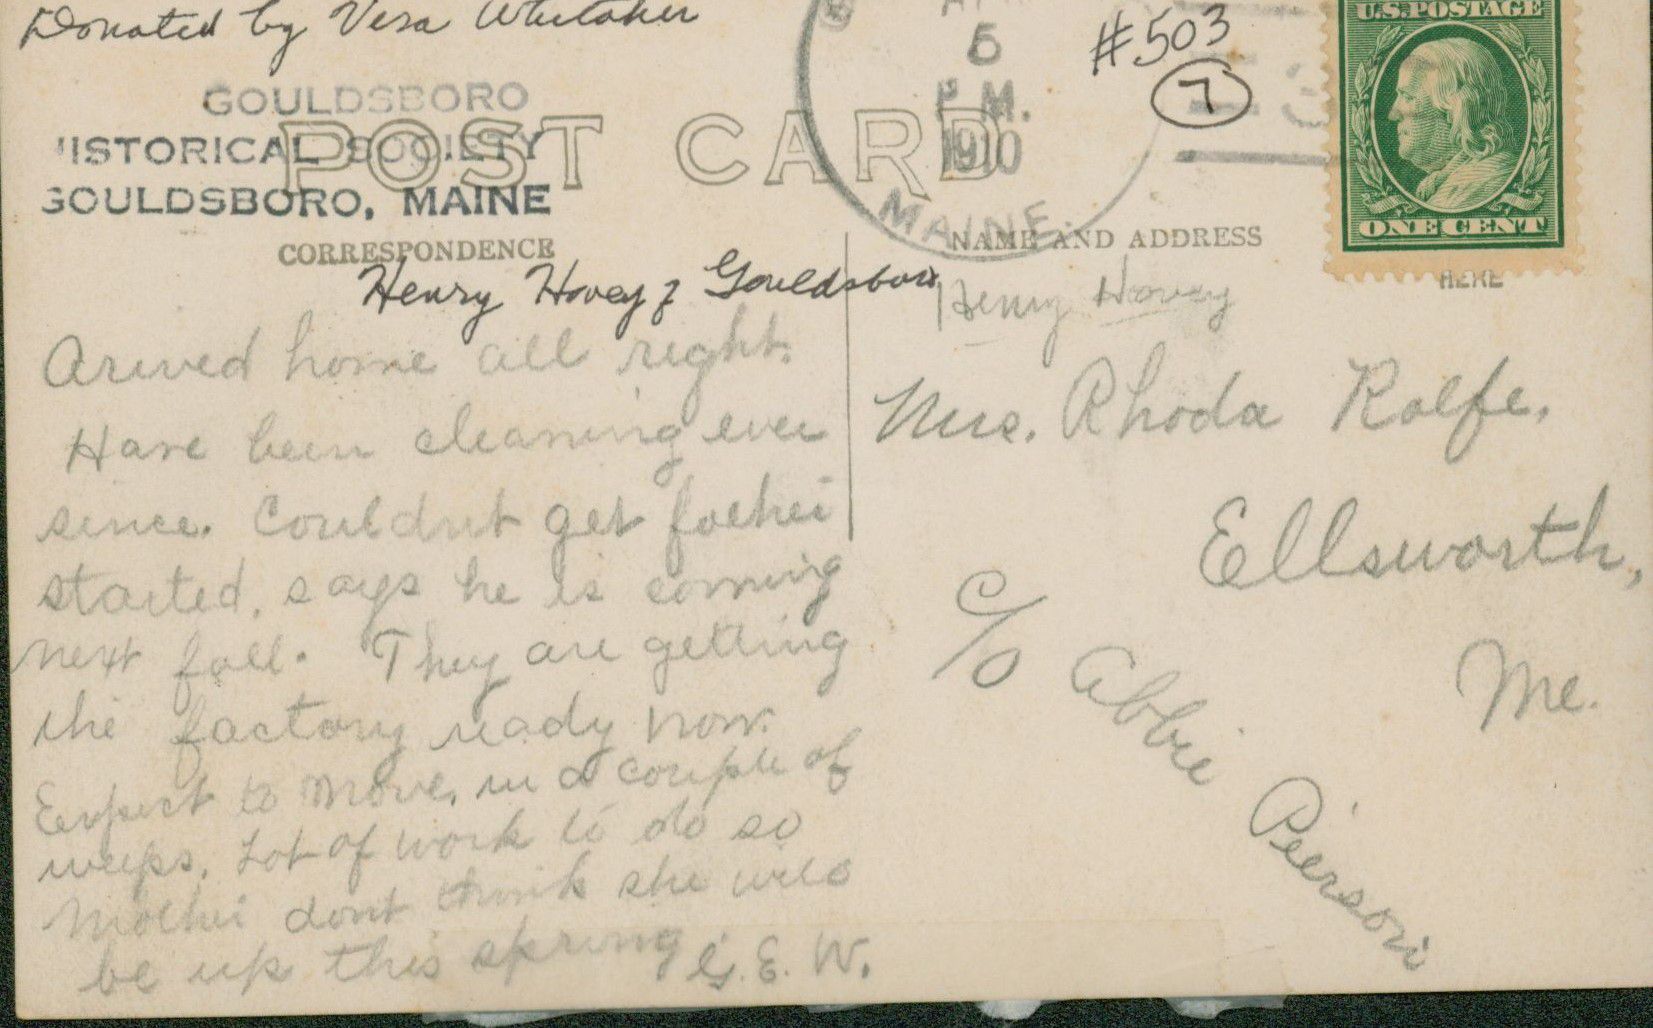 Donated by Vera Whitaker
GOULDSBORO
HISTORICAL SOCIETY
GOULDSBORO, MAINE
POST CARD
5
P.M.
1910
MAINE.
#503
7
U.S. POSTAGE
ONE CENT
HERE
CORRESPONDENCE
NAME AND ADDRESS
Henry Hovey, Gouldsboro
Henry Hovey
Arived home all right.
Have been cleaning ever
since. Couldnt get father
started, says he is coming
next fall. They are getting
the factory ready now.
Expect to move, in a couple of
weeks. Lot of work to do so
Mother dont think she will
be up this spring. G. E. W.
Mrs. Rhoda Rolfe,
Ellsworth,
Me.
c/o Abbie Pierson